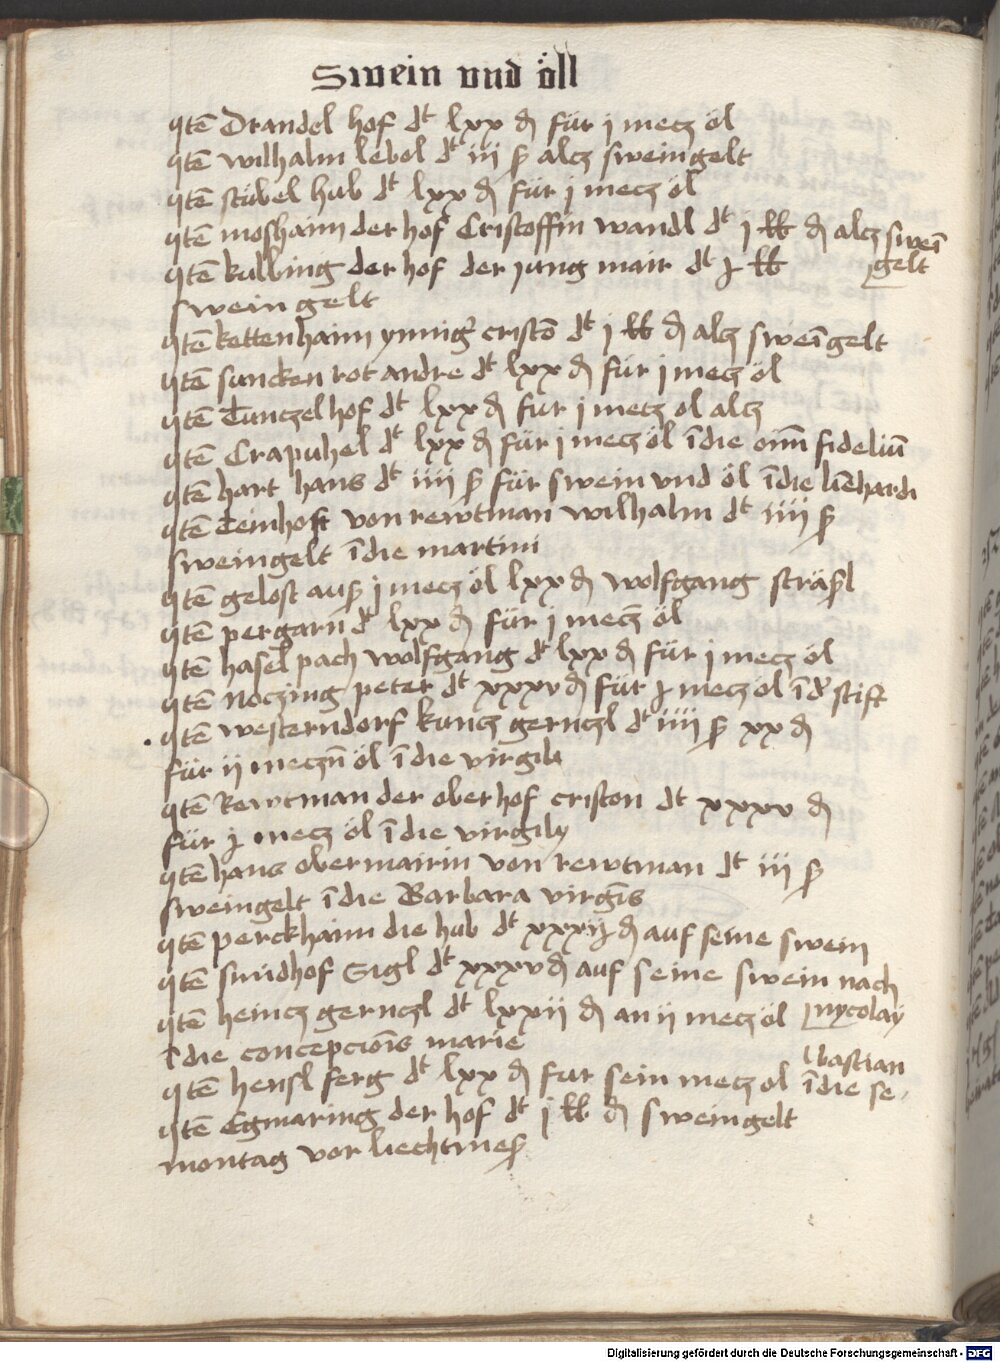 Swein vnd öll
Itē Drandel hof dt lxx d für j mecz öl
Itē wilhalm lebol dt iij ß alcz sweingelt
Itē stübel hub dt lxx d für j mecz öl
Itē moshaim der hof Cristoffin wandl dt j lb d alcz sweī
gelt
Itē kulbing der hof der jung mair dt j lb
sweingelt
Itē kettenhaim ynnig' cristō dt j lb d alcz sweīgelt
Itē suncken rot andre dt lxx d für j mecz öl
Itē Tunczelhof dt lxx d fur j mecz ol alcz
Itē Crapuhel dt lxx d für j mecz öl ī die oīm fideliū
Itē hart hans dt iiij ß für swein vnd öl ī die liēhardi
Itē Teinhoft von rewtman wilhalm dt iiij ß
sweingelt ī die martini
Itē gelost auß j mecz öl lxx d wolfgang sträßl
Itē pergarn dt lxx d für j mecz öl
Itē haselpach wolfgang dt lxx d für j mecz öl
Itē Noczing peter dt xxxv d für j mecz öl ī d' stift
Itē westerndorf kuncz gernczl dt iiij ß xx d
für ij meczn̄ öl ī die virgily
Itē Rewtman der oberhof criston dt xxxv d
für j mecz öl ī die virgily
Itē hans obermairin von rewtman dt iij ß
sweingelt ī die Barbara virgīs
Itē perckhaim die hub dt xxxij d auf seine swein
Itē smidhof Sigl dt xxxv d auf seine swein nach
nycolay
Itē heincz gernczl dt lxxij d an ij mecz öl
ī die concepcioīs marie
Itē hensl ferg dt lxx d fur sein mecz ol ī die se-
bastian
Itē Egmaring der hof dt j lb d sweingelt
montag vor liechtmeß
Digitalisierung gefördert durch die Deutsche Forschungsgemeinschaft - DFG